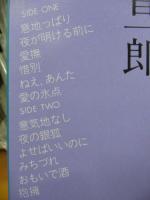 SIDE ONE
意地っぱり
夜が明ける前に
愛撫
惜別
ねえ、あんた
愛の氷点
SIDE TWO
意気地なし
夜の銀狐
よせばいいのに
みちづれ
おもいで酒
抱擁
郎